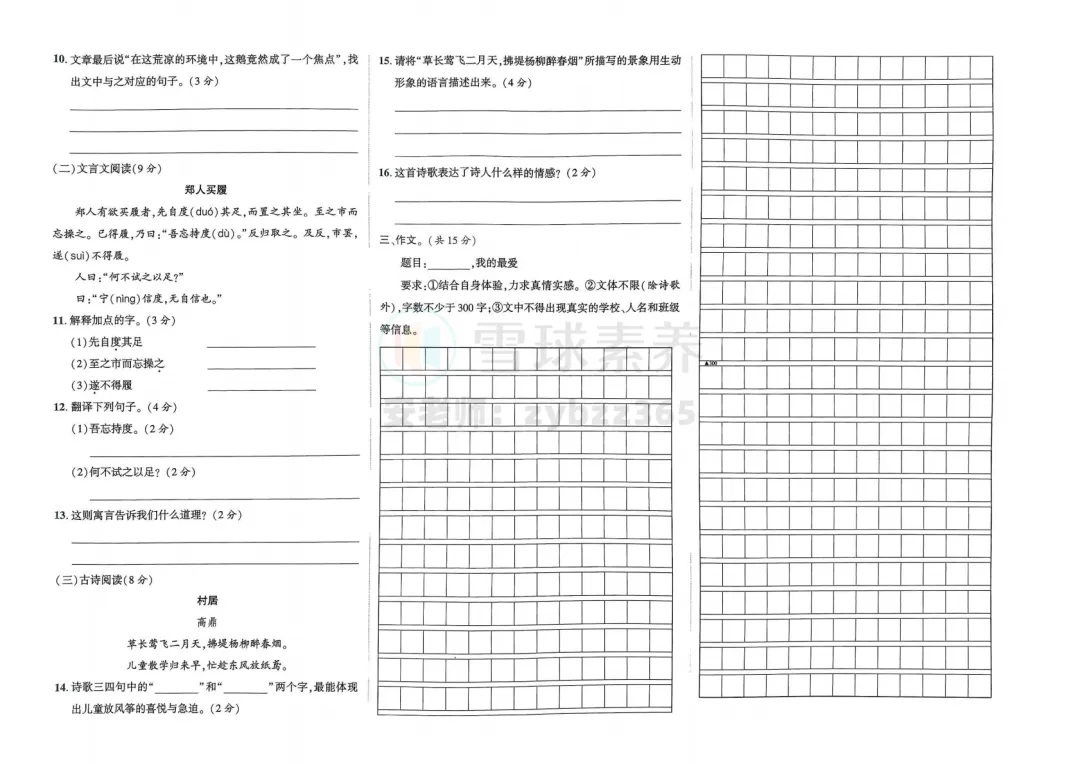 10. 文章最后说“在这荒凉的环境中,这鹅竟然成了一个焦点”,找
出文中与之对应的句子。(3 分)
(二)文言文阅读(9 分)
郑人买履
郑人有欲买履者,先自度(duó)其足,而置之其坐。至之市而
忘操之。已得履,乃曰:“吾忘持度(dù)。”反归取之。及反,市罢,
遂(suì)不得履。
人曰:“何不试之以足?”
曰:“宁(nìng)信度,无自信也。”
11. 解释加点的字。(3 分)
(1)先自度其足
(2)至之市而忘操之
(3)遂不得履
12. 翻译下列句子。(4 分)
(1)吾忘持度。(2 分)
(2)何不试之以足?(2 分)
13. 这则寓言告诉我们什么道理?(2 分)
(三)古诗阅读(8 分)
村居
高鼎
草长莺飞二月天,拂堤杨柳醉春烟。
儿童散学归来早,忙趁东风放纸鸢。
14. 诗歌三四句中的“________”和“________”两个字,最能体现
出儿童放风筝的喜悦与急迫。(2 分)
15. 请将“草长莺飞二月天,拂堤杨柳醉春烟”所描写的景象用生动
形象的语言描述出来。(4 分)
16. 这首诗歌表达了诗人什么样的情感?(2 分)
三、作文。(共 15 分)
题目:________,我的最爱
要求:①结合自身体验,力求真情实感。②文体不限(除诗歌
外),字数不少于 300 字;③文中不得出现真实的学校、人名和班级
等信息。
雪球素养
安老师:zybzz365
▲300